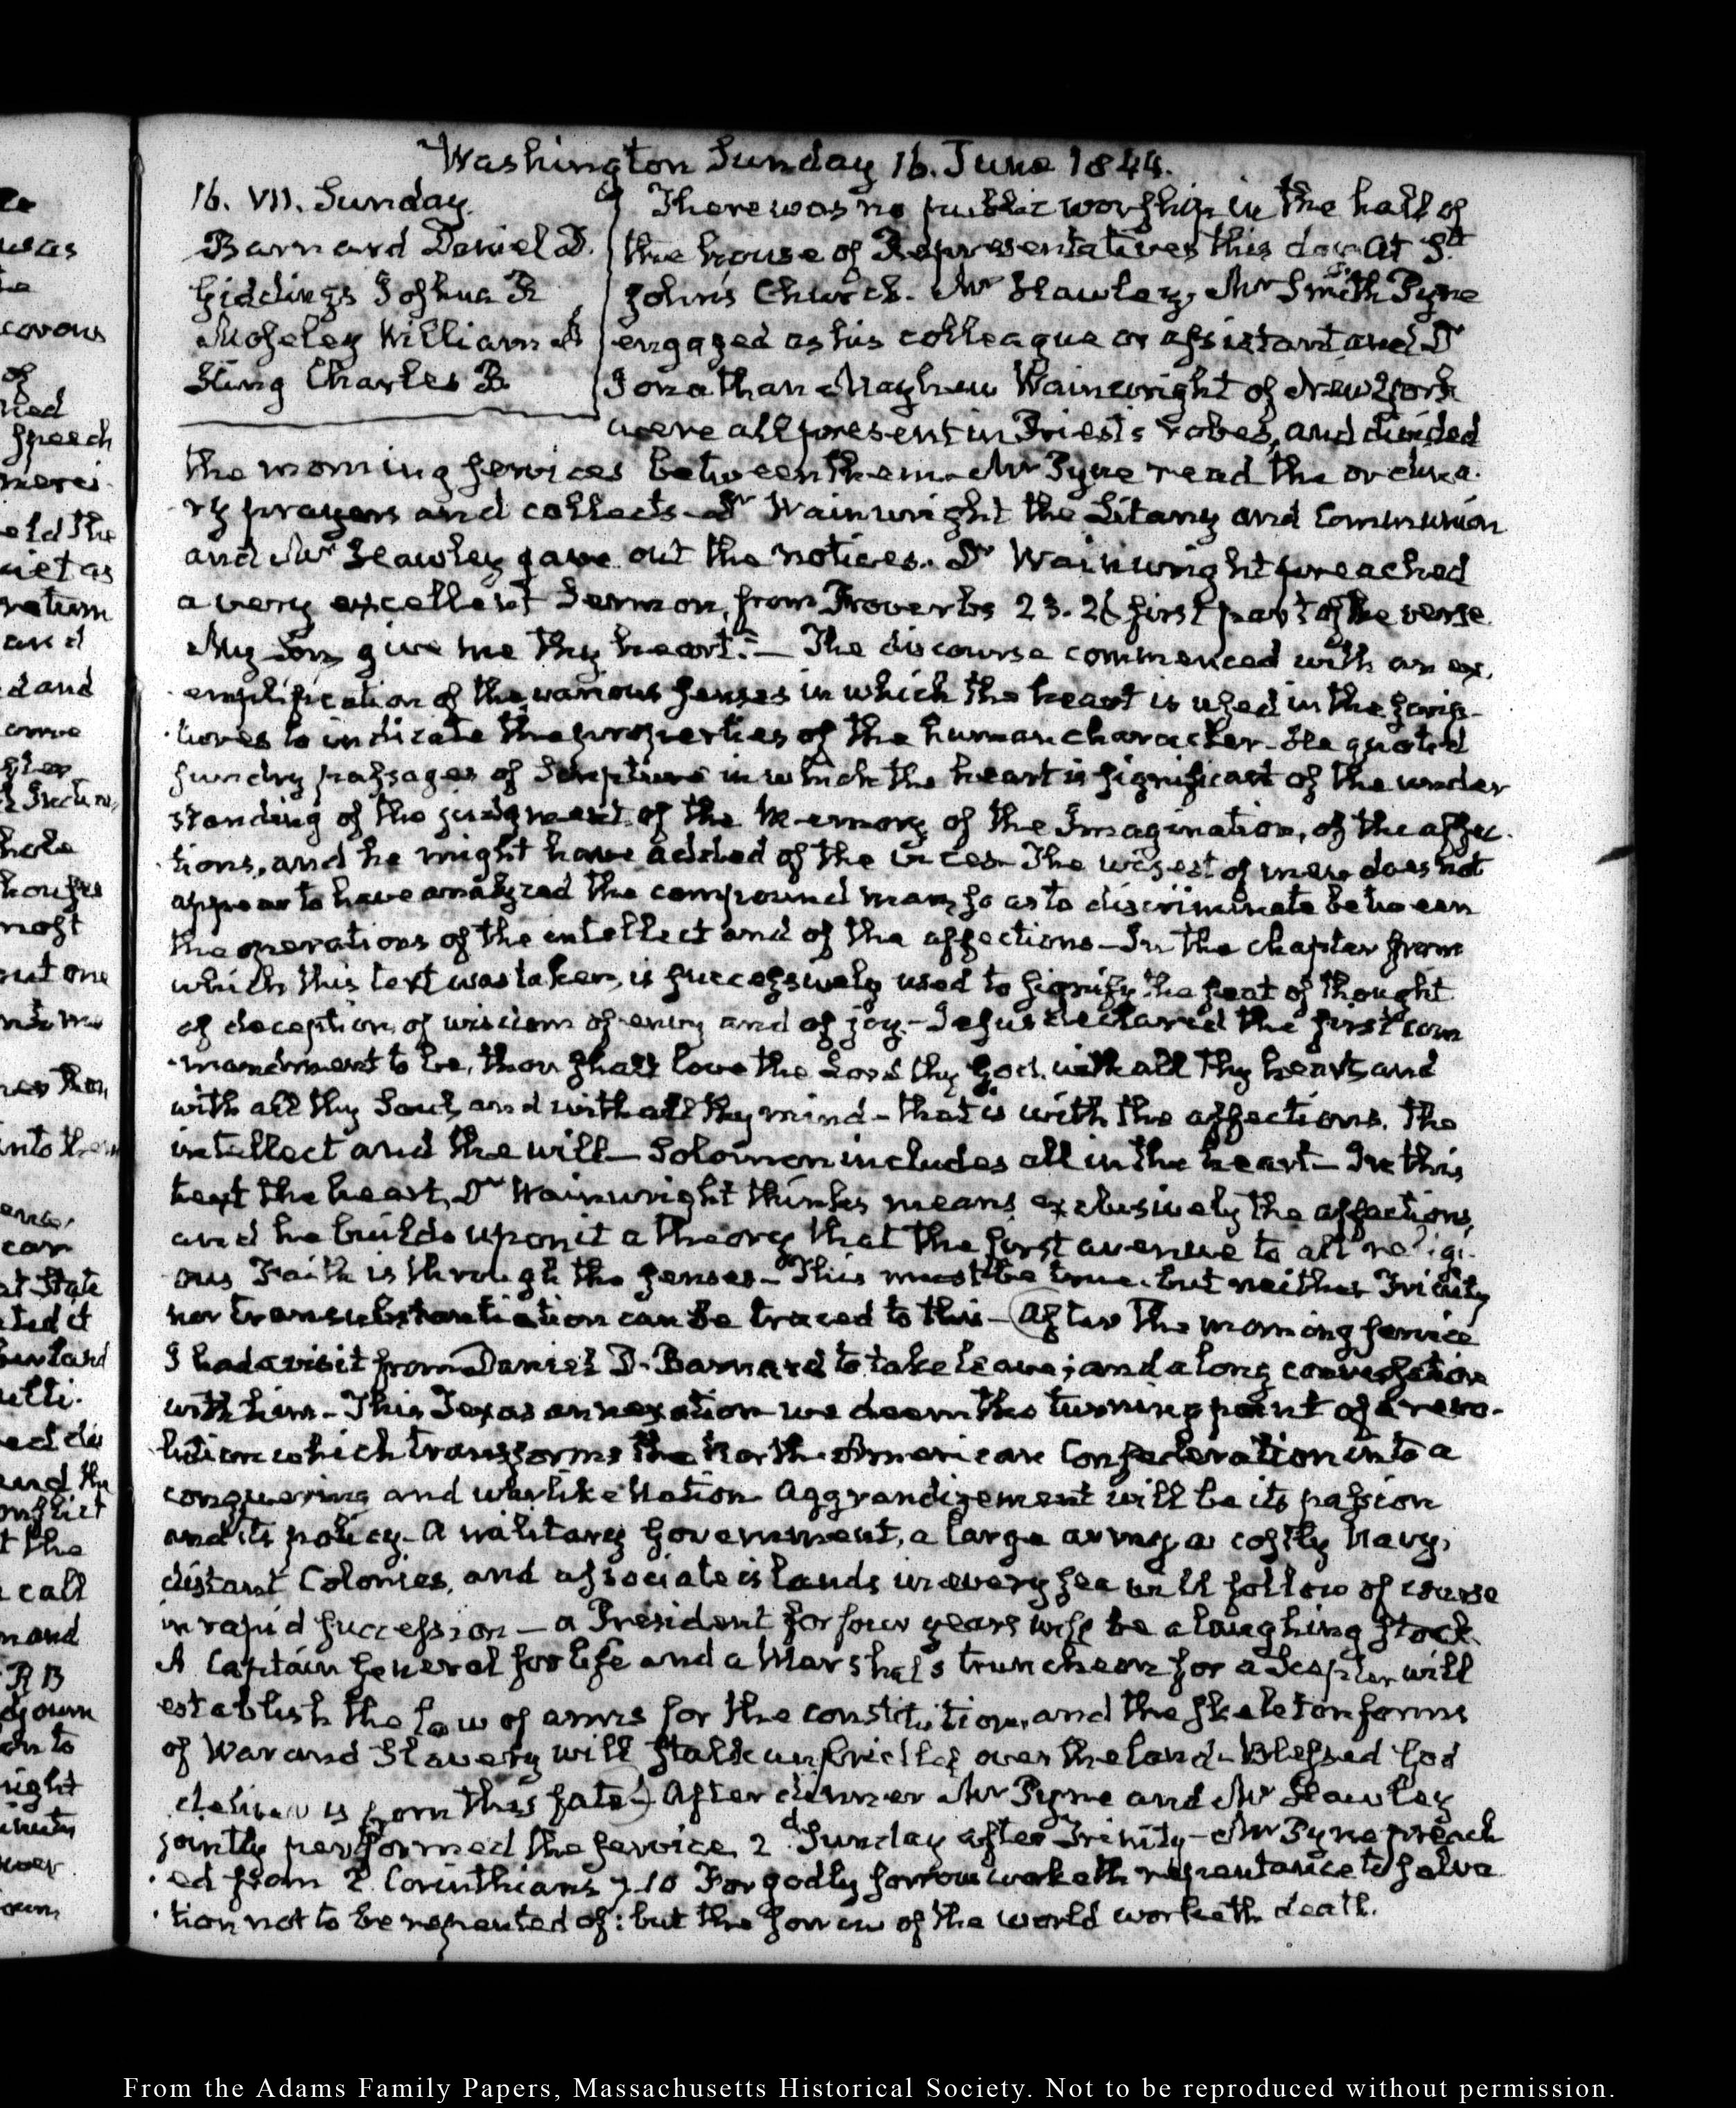 Washington Sunday 16. June 1844.
16. VII. Sunday.
Barnard Daniel D.
Giddings Joshua R
Moseley William A
King Charles B.
There was no public worship in the hall of
the house of Representatives this day At St
John's Church. Mr Hawley, Mr Smith Pyne
engaged as his colleague or assistant and Dr
Jonathan Mayhew Wainwright of New York
were all present in Priest's robes, and divided
the morning services between them. Mr Pyne read the ordina-
ry prayers and collects - Dr Wainwright the Litany and Communion
and Mr Hawley gave out the notices. Dr Wainwright preached
a very excellent Sermon, from Proverbs 23. 26 first part of the verse.
My Son give me thy heart." — The discourse commenced with an ex-
emplification of the various senses in which the heart is used in the scrip-
tures to indicate the properties of the human character. He quoted
sundry passages of Scripture in which the heart is significant of the under
standing of the judgment, of the Memory, of the Imagination, of the affec-
tions, and he might have added of the vices - The wisest of men does not
appear to have analyzed the compound man, so as to discriminate between
the operations of the intellect and of the affections - In the chapter from
which this text was taken, is successively used to signify the seat of thought
of deception, of wisdom of envy and of joy. - Jesus declared the first com
mandment to be, thou shalt love the Lord thy God, with all thy heart, and
with all thy Soul, and with all thy mind - that is with the affections. The
intellect and the will - Solomon includes all in the heart - In this
text the heart, Dr Wainwright thinks means exclusively the affections,
and he builds upon it a theory that the first avenue to all religi-
ous Faith is through the senses - This must be true. but neither Trinity
nor transubstantiation can be traced to this - After the morning service
I had a visit from Daniel D. Barnard to take leave; and a long conversation
with him. - This Texas annexation we deem the turning point of a revo-
lution which transforms the North-American Confederation into a
conquering and warlike Nation. Aggrandizement will be its passion
and its policy. A military Government, a large army, a costly Navy,
distant Colonies, and associate islands in every sea will follow of course
in rapid succession — a President for four years will be a laughing stock.
A Captain General for life and a Marshal's truncheon for a Scepter will
establish the law of arms for the constitution, and the skeleton forms
of War and Slavery will stalk unbridled over the land - Blessed God
deliver us from this fate.) After dinner Mr Pyne and Mr Hawley
jointly performed the service. 2d Sunday after Trinity - Mr Pyne preach
ed from 2. Corinthians 7.10 For godly sorrow worketh repentance to salva
tion not to be repented of: but the sorrow of the world worketh death.
From the Adams Family Papers, Massachusetts Historical Society. Not to be reproduced without permission.